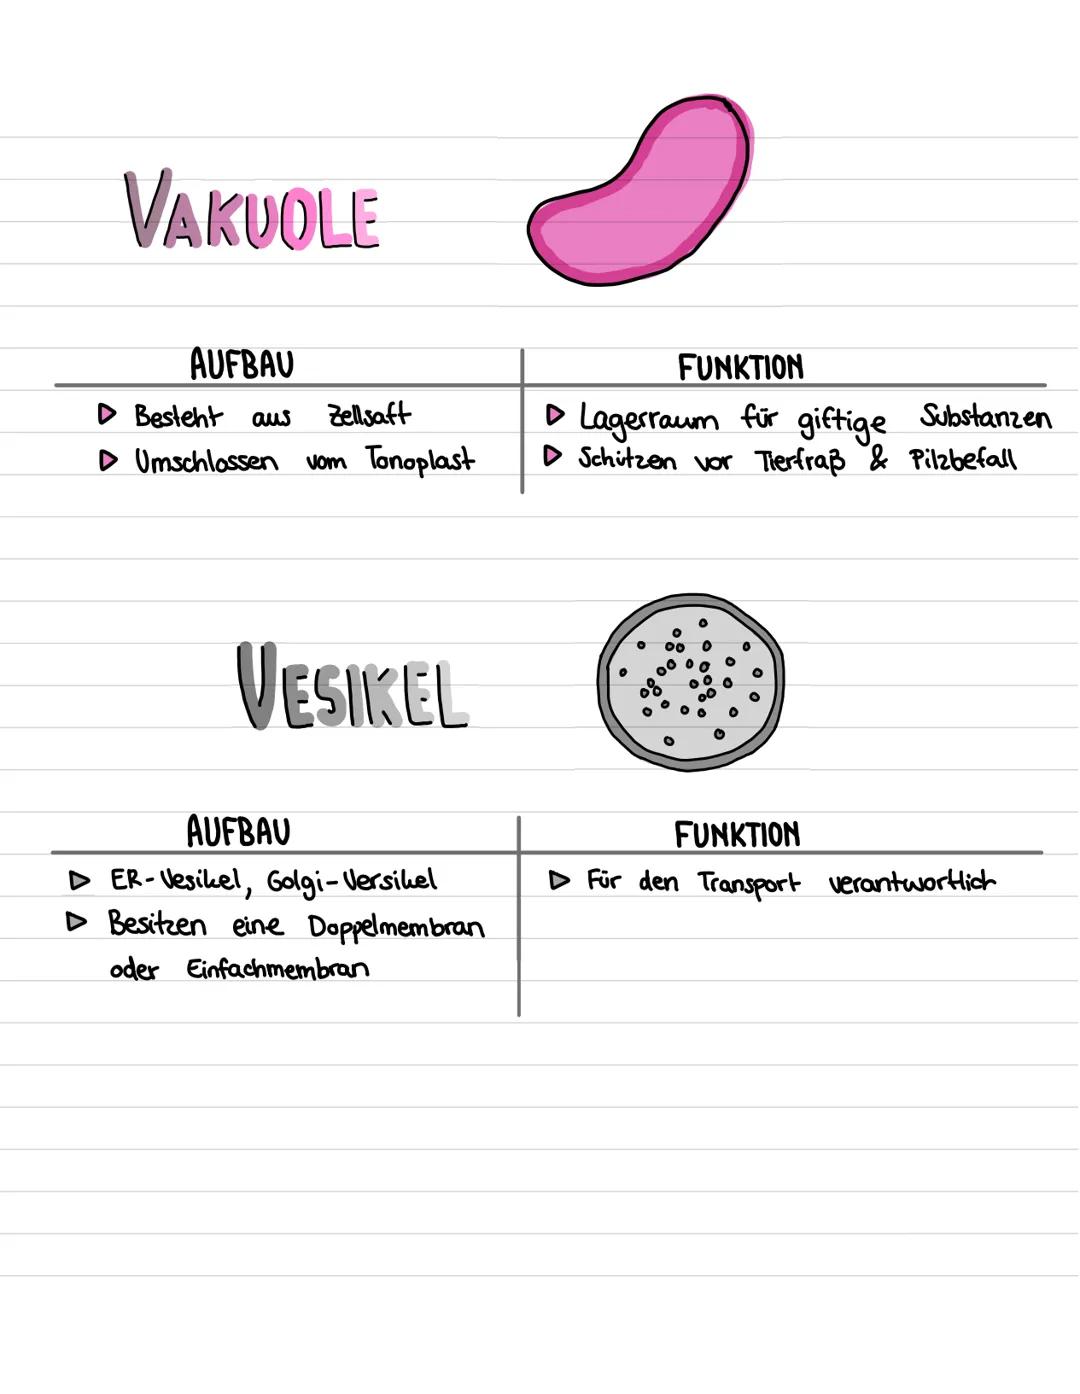 VAKUOLE
AUFBAU
FUNKTION
Besteht aus Zellsaft
Lagerraum für giftige Substanzen
Umschlossen vom Tonoplast
Schützen vor Tierfraß & Pilzbefall
VESIKEL
AUFBAU
FUNKTION
ER-Vesikel, Golgi-Versikel
Für den Transport verantwortlich
Besitzen eine Doppelmembran
oder Einfachmembran